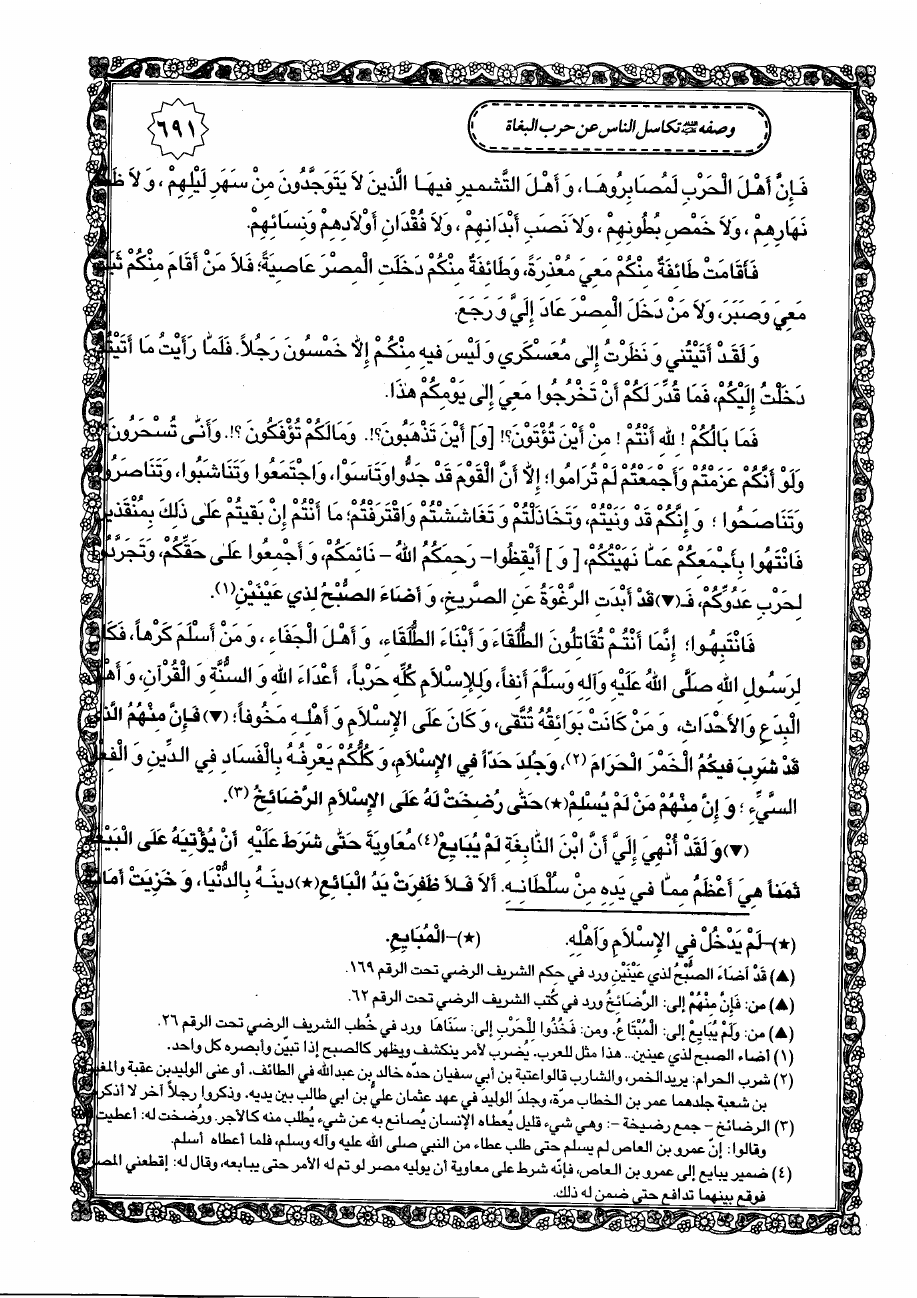 وصفه عليه السلام تكاسل الناس عن حرب البغاة
٦٩١
فَإِنَّ أَهْلَ الْحَرْبِ لَمُصَابِرُوهَا، وَ أَهْلَ التَّشْميرِ فيهَا الَّذينَ لاَ يَتَوَجَّدُونَ مِنْ سَهَرِ لَيْلِهِمْ، وَلاَ
نَهَارِهِمْ، وَلاَ خَمْصِ بُطُونِهِمْ، وَلاَ نَصَبِ أَبْدَانِهِمْ، وَلاَ فُقْدَانِ أَوْلاَدِهِمْ وَنِسَائِهِمْ.
فَأَقَامَتْ طَائِفَةٌ مِنْكُمْ مَعِيَ مُعْذِرَةً، وَطَائِفَةٌ مِنْكُمْ دَخَلَتِ الْمِصْرَ عَاصِيَةً؛ فَلاَ مَنْ أَقَامَ مِنْكُمْ
مَعِيَ وَصَبَرَ، وَلاَ مَنْ دَخَلَ الْمِصْرَ عَادَ إِلَيَّ وَ رَجَعَ.
وَ لَقَدْ أَتَيْتُني وَ نَظَرْتُ إِلى مُعَسْكَري وَ لَيْسَ فيهِ مِنْكُمْ إِلاَّ خَمْسُونَ رَجُلاً. فَلَمَّا رَأَيْتُ مَا
دَخَلْتُ إِلَيْكُمْ، فَمَا قُدِّرَ لَكُمْ أَنْ تَخْرُجُوا مَعِيَ إِلى يَوْمِكُمْ هذَا.
فَمَا بَالُكُمْ ! لِلّهِ أَنْتُمْ ! مِنْ أَيْنَ تُؤْتَوْنَ؟! [وَ] أَيْنَ تَذْهَبُونَ؟!. وَمَالَكُمْ تُؤْفَكُونَ ؟!. وَأَنّى تُسْحَرُونَ؟
وَلَوْ أَنَّكُمْ عَزَمْتُمْ وَأَجْمَعْتُمْ لَمْ تُرَامُوا؛ إِلاَّ أَنَّ الْقَوْمَ قَدْ جَدُّوا وَتَآسَوْا، وَاجْتَمَعُوا وَتَنَاشَبُوا، وَتَنَاصَرُوا
وَتَنَاصَحُوا ؛ وَ إِنَّكُمْ قَدْ وَنَيْتُمْ، وَتَخَاذَلْتُمْ وَ تَغَاشَشْتُمْ وَافْتَرَقْتُمْ؛ مَا أَنْتُمْ إِنْ بَقيتُمْ عَلى ذلِكَ بِمُنْقَذينَ
فَانْتَهُوا بِأَجْمَعِكُمْ عَمَّا نَهَيْتُكُمْ، [ وَ ] أَيْقِظُوا- رَحِمَكُمُ اللهُ - نَائِمَكُمْ، وَ أَجْمِعُوا عَلى حَقِّكُمْ، وَتَجَرَّدُوا
لِحَرْبِ عَدُوِّكُمْ، فَـ(▼)قَدْ أَبْدَتِ الرَّغْوَةُ عَنِ الصَّريحِ، وَ أَضَاءَ الصُّبْحُ لِذي عَيْنَيْنِ(١).
فَانْتَبِهُوا؛ إِنَّمَا أَنْتُمْ تُقَاتِلُونَ الطُّلَقَاءَ وَ أَبْنَاءَ الطُّلَقَاءِ، وَ أَهْلَ الْجَفَاءِ، وَ مَنْ أَسْلَمَ كَرْهاً،
لِرَسُولِ اللهِ صَلَّى اللهُ عَلَيْهِ وَآلِهِ وَسَلَّمَ أَنْفاً، وَلِلإِسْلاَمِ كُلِّهِ حَرْباً، أَعْدَاءَ اللهِ وَ السُّنَّةِ وَ الْقُرْآنِ، وَ
الْبِدَعِ وَالأَحْدَاثِ، وَ مَنْ كَانَتْ بَوَائِقُهُ تُتَّقى، وَ كَانَ عَلَى الإِسْلاَمِ وَ أَهْلِهِ مَخُوفاً؛ (▼) فَإِنَّ مِنْهُمُ الَّذي
قَدْ شَرِبَ فيكُمُ الْخَمْرَ الْحَرَامَ (٢)، وَجُلِدَ حَدّاً فِي الإِسْلاَمِ، وَ كُلُّكُمْ يَعْرِفُهُ بِالْفَسَادِ فِي الدّينِ وَ الْفِعْلِ
السَّيِّئِ ؛ وَ إِنَّ مِنْهُمْ مَنْ لَمْ يُسْلِمْ(★) حَتّى رُضِخَتْ لَهُ عَلَى الإِسْلاَمِ الرَّضَائِخُ (٣).
(▼) وَ لَقَدْ أُنْهِيَ إِلَيَّ أَنَّ ابْنَ النَّابِغَةِ لَمْ يُبَايِعْ(٤) مُعَاوِيَةَ حَتّى شَرَطَ عَلَيْهِ أَنْ يُؤْتِيَهُ عَلَى الْبَيْعَةِ
ثَمَناً هِيَ أَعْظَمُ مِمَّا في يَدِهِ مِنْ سُلْطَانِهِ. أَلاَ فَلاَ ظَفِرَتْ يَدُ الْبَائِعِ(★) دينَهُ بِالدُّنْيَا، وَ خَزِيَتْ
(★)-لَمْ يَدْخُلْ فِي الإِسْلاَمِ وَأَهْلِهِ. (★)-الْمُبَايِعِ.
(▲) قَدْ أَضَاءَ الصُّبْحُ لِذي عَيْنَيْنِ ورد في حِكم الشريف الرضي تحت الرقم ١٦٩.
(▲) من: فَإِنَّ مِنْهُمْ إلى: الرَّضَائِخُ ورد في كُتب الشريف الرضي تحت الرقم ٦٢.
(▲) من: وَلَمْ يُبَايِعْ إلى: الْمُبْتَاعِ. ومن: فَخُذُوا لِلْحَرْبِ إلى: سَنَاهَا ورد في خُطب الشريف الرضي تحت الرقم ٢٦.
(١) أضاء الصبح لذي عينين.. هذا مثل للعرب. يُضرب لأمر ينكشف ويظهر كالصبح إذا تبيّن وأبصره كل واحد.
(٢) شرب الحرام: يريد الخمر، والشارب قالوا عتبة بن أبي سفيان حدّه خالد بن عبد الله في الطائف. أو عنى الوليد بن عقبة
بن شعبة جلدهما عمر بن الخطاب مرّة، وجلد الوليد في عهد عثمان عليُّ بن أبي طالب بين يديه. وذكروا رجلاً آخر لا أذكره
(٣) الرضائخ - جمع رضيخة -: وهي شيء قليل يُعطاه الإنسان يُصانع به عن شيء يُطلب منه كالأجر. ورُضخت له: أعطيت
وقالوا: إنّ عمرو بن العاص لم يسلم حتى طلب عطاء من النبي صلى الله عليه وآله وسلم، فلما أعطاه أسلم.
(٤) ضمير يبايع إلى عمرو بن العاص، فإنّه شرط على معاوية أن يوليه مصر لو تم له الأمر حتى يبايعه، وقال له: إقطعني
فوقع بينهما تدافع حتى ضمن له ذلك.